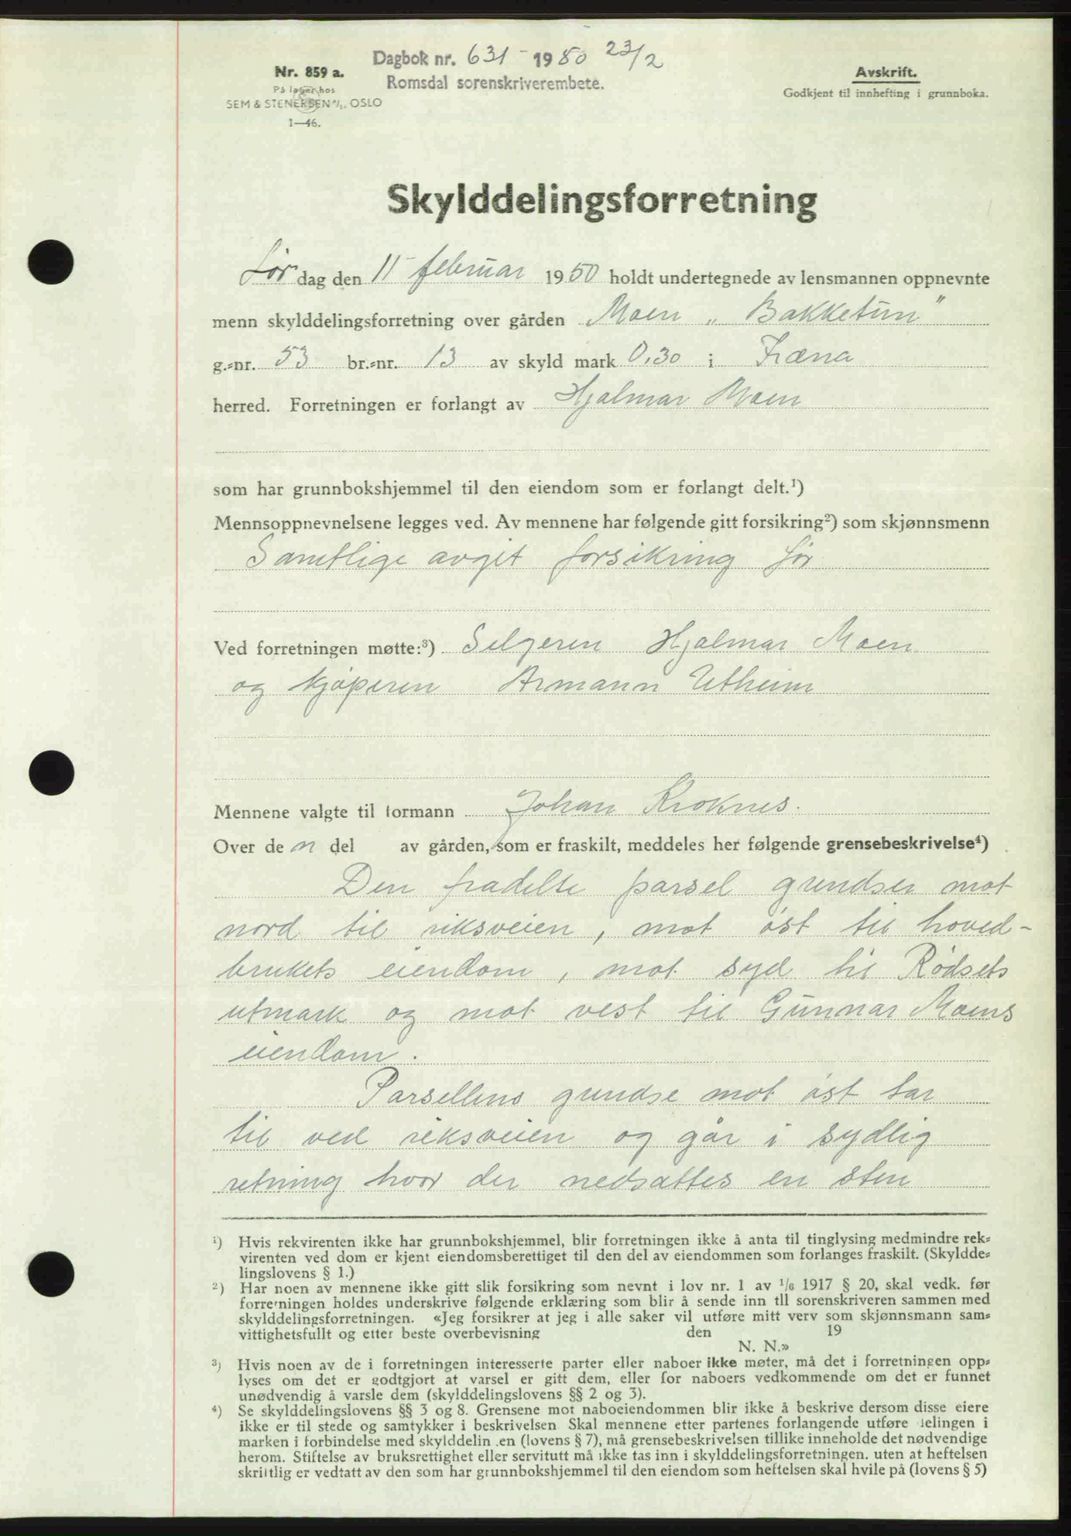 Dagbok nr. 631 - 1950 23/2
Romsdal sorenskriverembete.
Nr. 859 a.
På lager hos
SEM & STENERSEN A/S, OSLO
1—46.
Avskrift.
Godkjent til innhefting i grunnboka.
Skylddelingsforretning
Lør dag den 11 februar 1950 holdt undertegnede av lensmannen oppnevnte
menn skylddelingsforretning over gården Moen „Bakketun"
g.-nr. 53 br.-nr. 13 av skyld mark 0,30 i Fræna
herred. Forretningen er forlangt av Hjalmar Moen
som har grunnbokshjemmel til den eiendom som er forlangt delt.¹)
Mennsoppnevnelsene legges ved. Av mennene har følgende gitt forsikring²) som skjønnsmenn
Samtlige avgit forsikring før
Ved forretningen møtte:³) Selgeren Hjalmar Moen
og kjøperen Armann Utheim
Mennene valgte til formann Johan Kroknes.
Over de n del av gården, som er fraskilt, meddeles her følgende grensebeskrivelse⁴)
Den fradelte parsel grundser mot
nord til riksveien, mot øst til hoved-
brukets eiendom, mot syd til Rødsets
utmark og mot vest til Gunnar Moens
eiendom.
Parsellens grundse mot øst tar
til ved riksveien og går i sydlig
retning hvor der nedsattes en sten
¹) Hvis rekvirenten ikke har grunnbokshjemmel, blir forretningen ikke å anta til tinglysing medmindre rek-
virenten ved dom er kjent eiendomsberettiget til den del av eiendommen som forlanges fraskilt. (Skyldde-
lingslovens § 1.)
²) Har noen av mennene ikke gitt slik forsikring som nevnt i lov nr. 1 av 1/6 1917 § 20, skal vedk. før
forretningen holdes underskrive følgende erklæring som blir å sende inn til sorenskriveren sammen med
skylddelingsforretningen. «Jeg forsikrer at jeg i alle saker vil utføre mitt verv som skjønnsmann sam-
vittighetsfullt og etter beste overbevisning den 19
N. N.»
³) Hvis noen av de i forretningen interesserte parter eller naboer ikke møter, må det i forretningen opp-
lyses om det er godtgjort at varsel er gitt dem, eller for naboers vedkommende om det er funnet
unødvendig å varsle dem (skylddelingslovens §§ 2 og 3).
⁴) Se skylddelingslovens §§ 3 og 8. Grensene mot naboeiendommen blir ikke å beskrive dersom disse eiere
ikke er til stede og samtykker i beskrivelsen Skal mennene etter partenes forlangende utføre delingen i
marken i forbindelse med skylddelingen (lovens § 7), må grensebeskrivelsen tillike inneholde det nødvendige
herom. Stiftelse av bruksrettighet eller servitutt må ikke tas inn i skylddelingsforretningen. uten at heftelsen
skriftlig er vedtatt av den som har grunnbokshjemmel til den eiendom som heftelsen skal hvile på (lovens § 5)